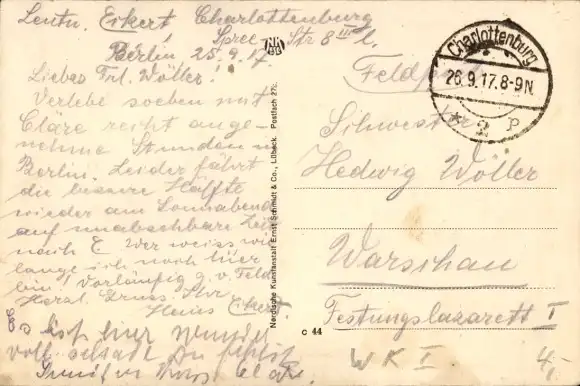 Leutn. Eckert Charlottenburg
Spree Str 8 III l.
Berlin, 25.9.17.
Liebes Frl. Wöller!
Verlebe soeben mit
Cläre recht ange-
nehme Stunden in
Berlin. Leider fährt
die bessere Hälfte
wieder am Sonnabend
auf unabsehbare Zeit
nach E. Wer weiss wie
lange ich noch hier
bin! Vorläufig g. v. Feld
Herzl. Gruss Ihr
Heins Eckert.
Es ist hier wunder
voll schade Du fehlst
Gruß
Nordische Kunstanstalt Ernst Schmidt & Co., Lübeck. Postfach 27c.
Charlottenburg
26.9.17.8-9N.
* 2 P
Feldpost
Schwester
Hedwig Wöller
Warschau
Festungslazarett I
c 44
W K I. 4,-